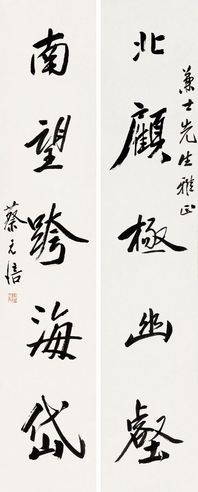 北顧極幽壑
蒹士先生雅正
南望跨海岱
蔡元培